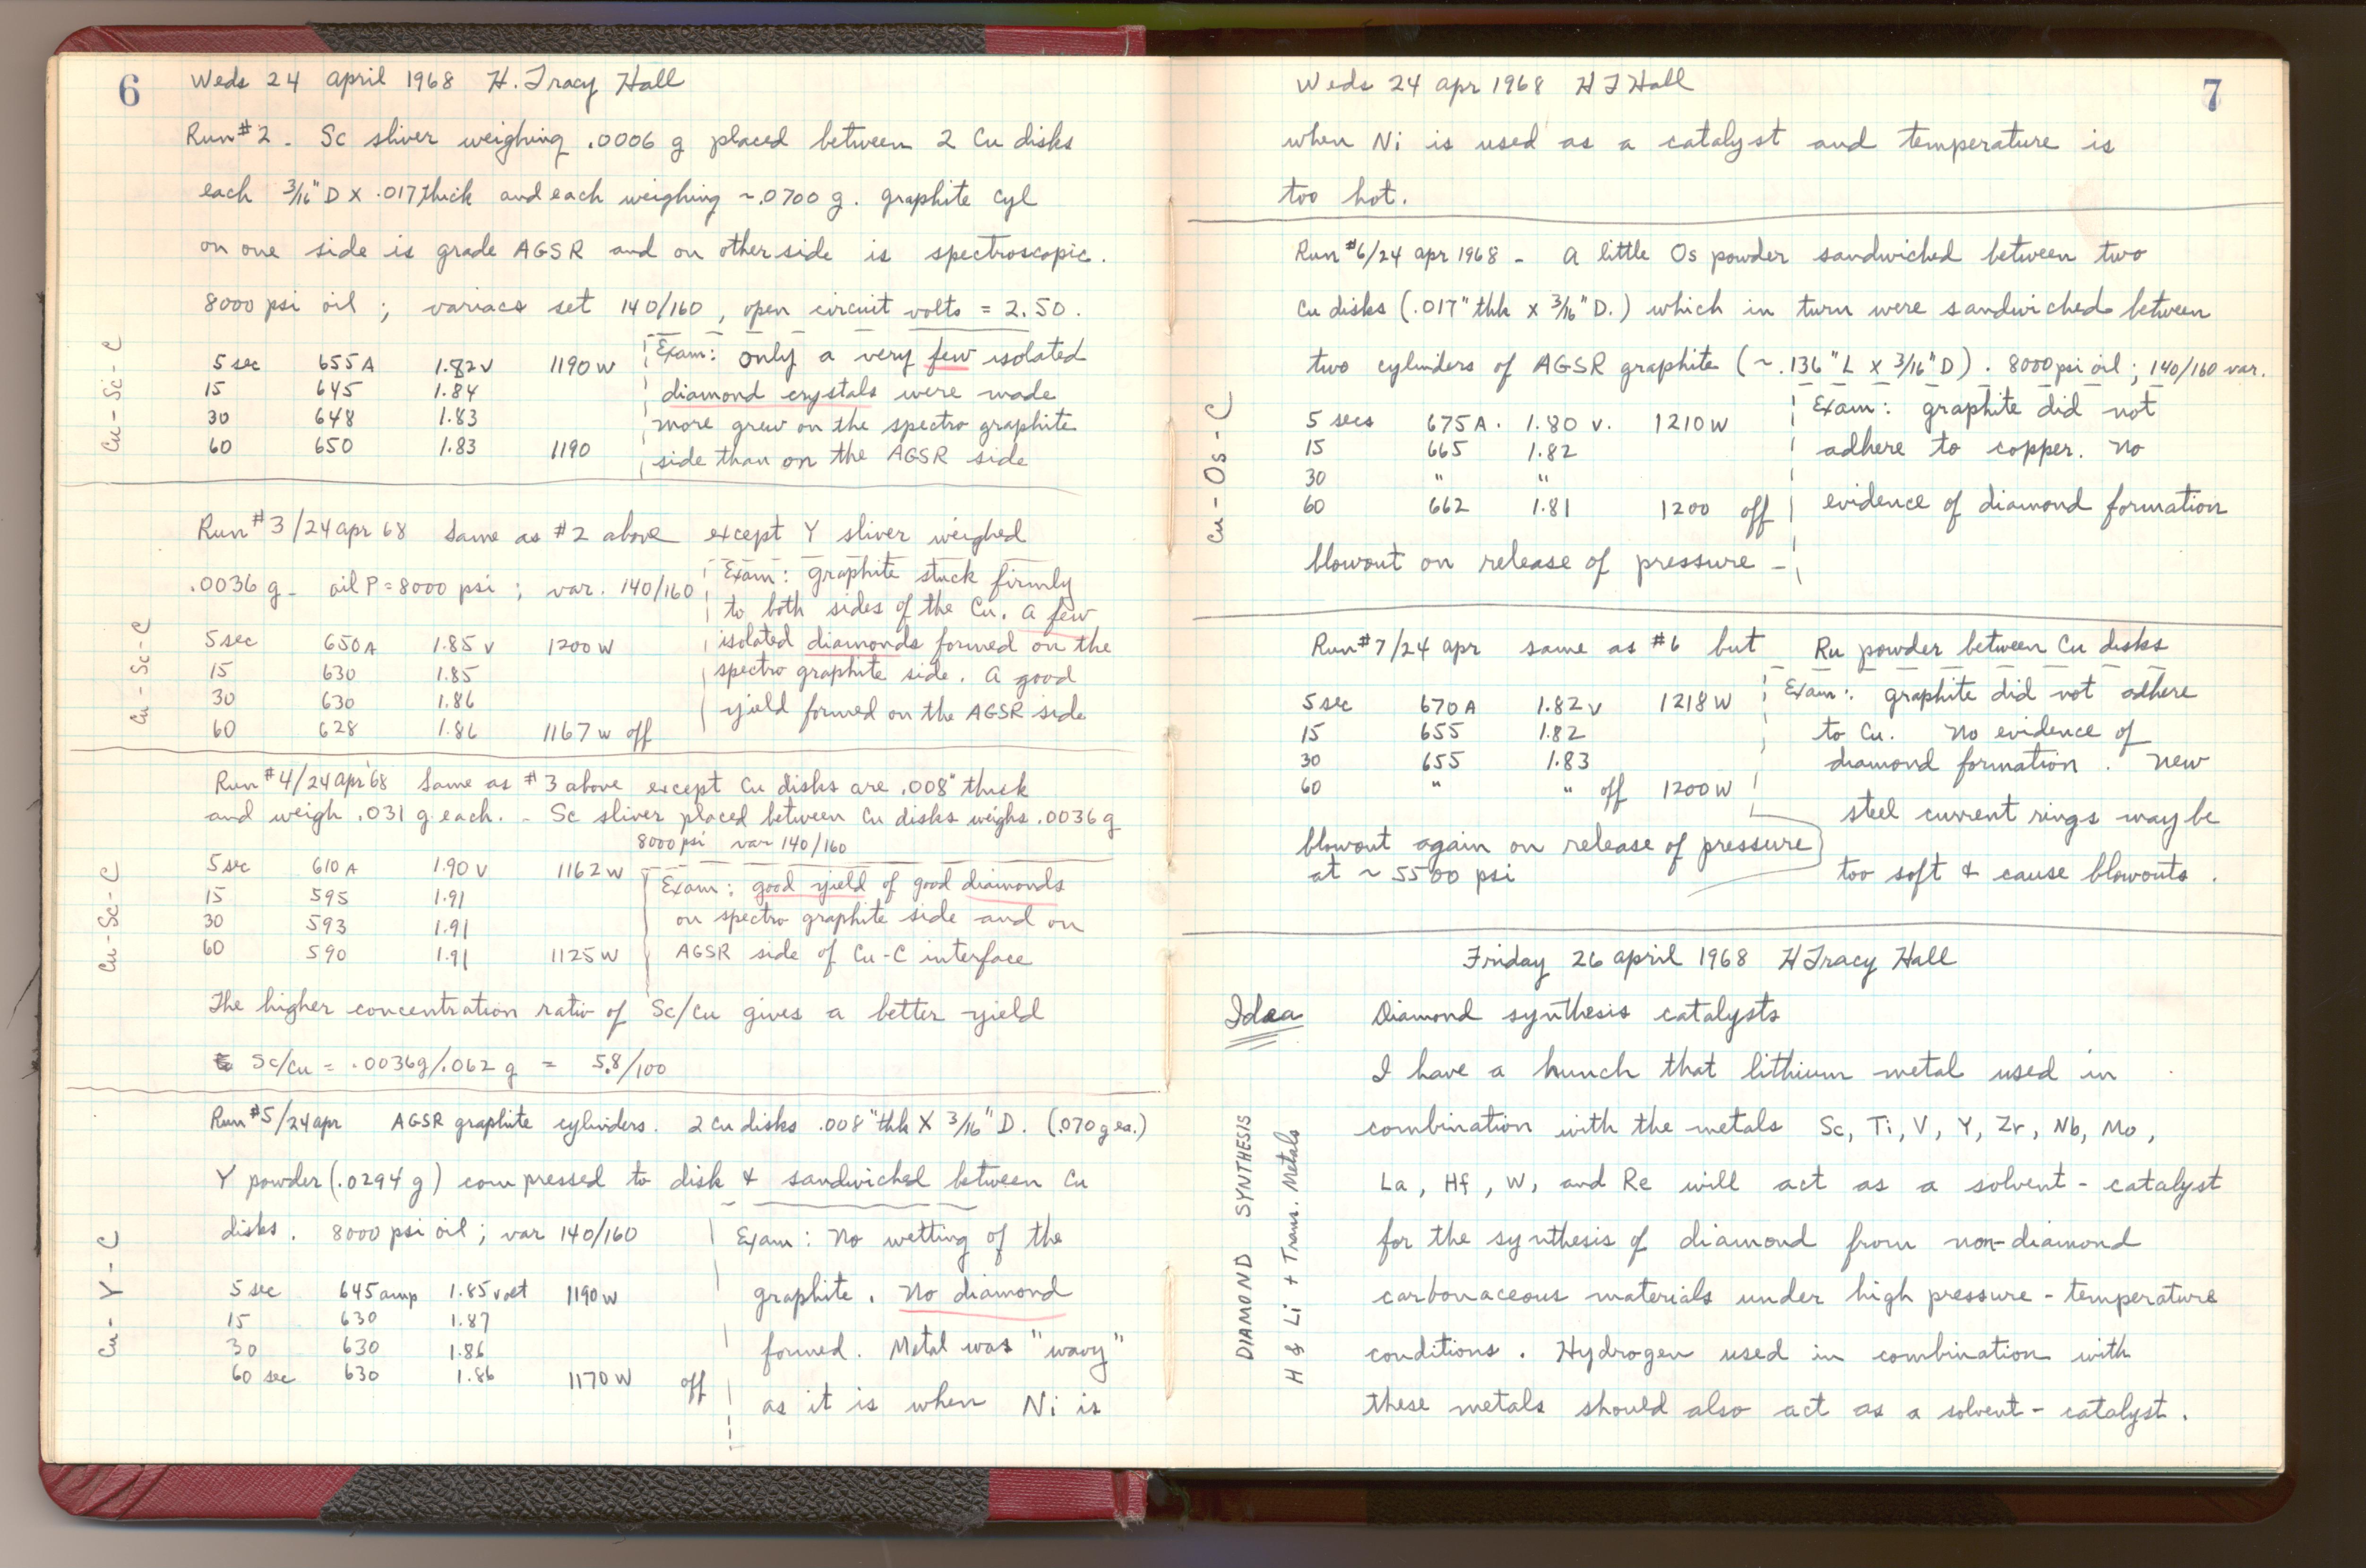 6
Weds 24 april 1968 H. Tracy Hall
Run #2 - Sc sliver weighing .0006 g placed between 2 Cu disks
each 3/16" D x .017 thick and each weighing ~.0700 g. graphite cyl
on one side is grade AGSR and on other side is spectroscopic.
8000 psi oil ; variacs set 140/160 , open circuit volts = 2.50.
Cu - Sc - C
5 sec 655 A 1.82 v 1190 W
15 645 1.84
30 648 1.83
60 650 1.83 1190
Exam: only a very few isolated
diamond crystals were made
more grew on the spectro graphite
side than on the AGSR side
Run #3/24 apr 68 Same as #2 above except Y sliver weighed
.0036 g - oil P = 8000 psi ; var. 140/160
Cu - Sc - C
5 sec 650 A 1.85 v 1200 W
15 630 1.85
30 630 1.86
60 628 1.86 1167 w off
Exam: graphite stuck firmly
to both sides of the Cu. a few
isolated diamonds formed on the
spectro graphite side. A good
yield formed on the AGSR side
Run #4/24 apr '68 Same as #3 above except Cu disks are .008" thick
and weigh .031 g each. - Sc sliver placed between Cu disks weighs .0036 g
8000 psi var 140/160
Cu - Sc - C
5 sec 610 A 1.90 v 1162 W
15 595 1.91
30 593 1.91
60 590 1.91 1125 W
Exam: good yield of good diamonds
on spectro graphite side and on
AGSR side of Cu-C interface
The higher concentration ratio of Sc/Cu gives a better yield
Sc/Cu = .0036g/.062 g = 5.8/100
Run #5/24 apr AGSR graphite cylinders. 2 Cu disks .008" thk X 3/16" D. (.070 g ea.)
Y powder (.0294 g) compressed to disk & sandwiched between Cu
disks. 8000 psi oil ; var 140/160
Cu - Y - C
5 sec 645 amp 1.85 volt 1190 W
15 630 1.87
30 630 1.86
60 sec 630 1.86 1170 W off
Exam: No wetting of the
graphite. No diamond
formed. Metal was "wavy"
as it is when Ni is
Weds 24 apr 1968 H T Hall
7
when Ni is used as a catalyst and temperature is
too hot.
Run #6/24 apr 1968 - A little Os powder sandwiched between two
Cu disks (.017" thk x 3/16" D.) which in turn were sandwiched between
two cylinders of AGSR graphite (~.136" L x 3/16" D). 8000 psi oil ; 140/160 var.
Cu - Os - C
5 secs 675 A. 1.80 v. 1210 W
15 665 1.82
30 " "
60 662 1.81 1200 off
blowout on release of pressure -
Exam: graphite did not
adhere to copper. No
evidence of diamond formation
Run #7/24 apr same as #6 but Ru powder between Cu disks
5 sec 670 A 1.82 v 1218 W
15 655 1.82
30 655 1.83
60 " " off 1200 W
blowout again on release of pressure
at ~ 5500 psi
Exam: graphite did not adhere
to Cu. No evidence of
diamond formation. New
steel current rings may be
too soft & cause blowouts.
Friday 26 april 1968 H Tracy Hall
Idea
Diamond synthesis catalysts
I have a hunch that lithium metal used in
combination with the metals Sc, Ti, V, Y, Zr, Nb, Mo,
La, Hf, W, and Re will act as a solvent - catalyst
for the synthesis of diamond from non-diamond
carbonaceous materials under high pressure - temperature
conditions. Hydrogen used in combination with
these metals should also act as a solvent - catalyst.
DIAMOND SYNTHESIS
H & Li + Trans. Metals